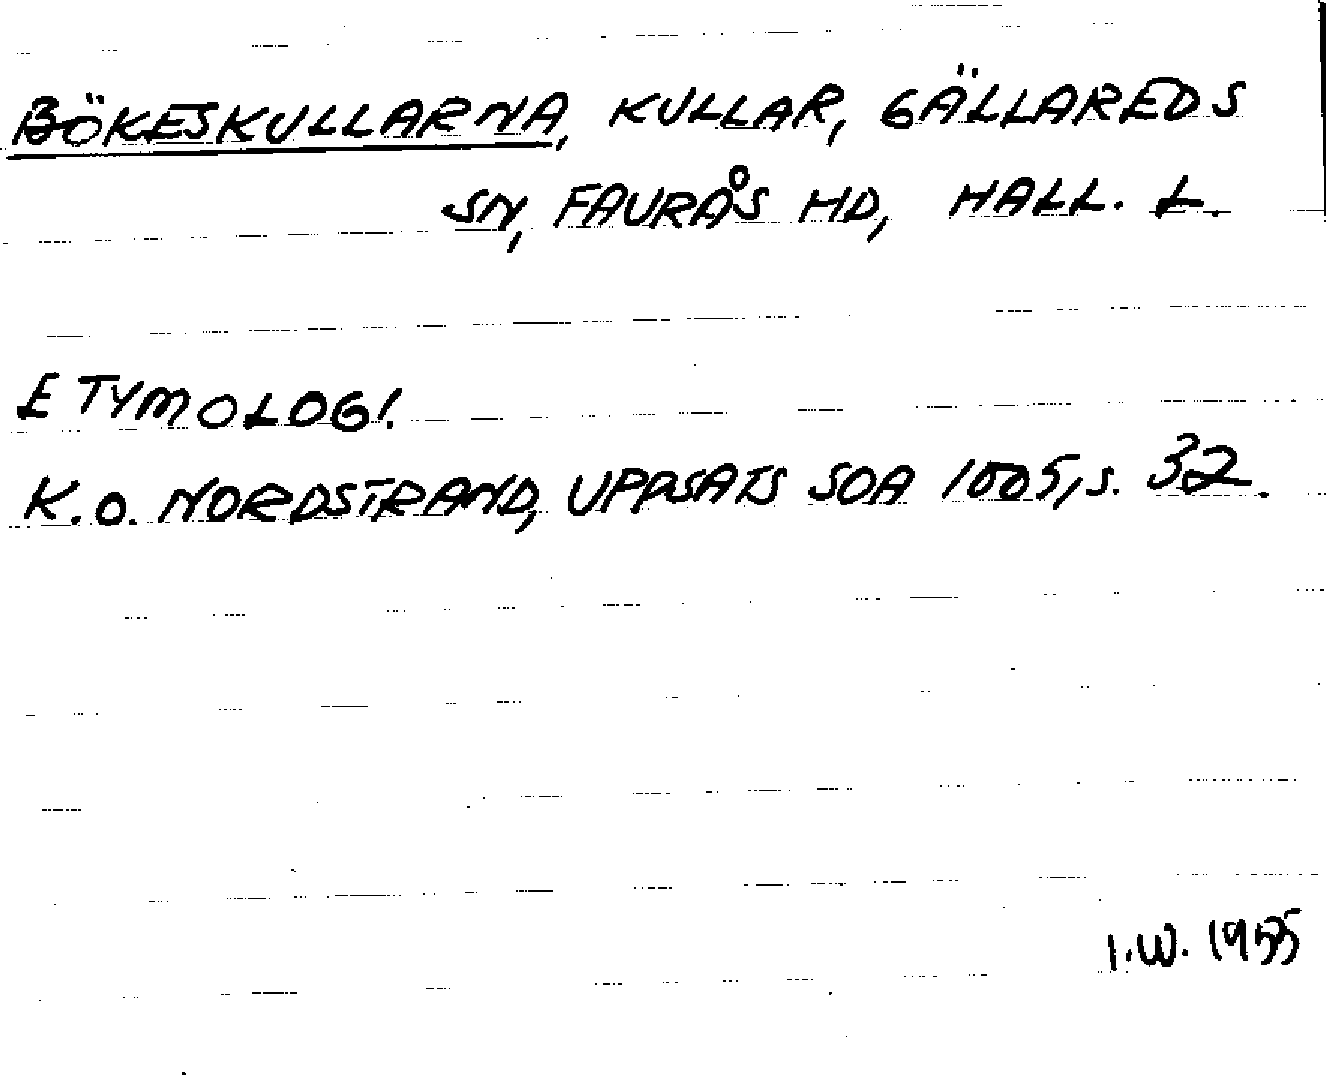 BÖKESKULLARNA, KULLAR, GÄLLAREDS
SN, FAURÅS HD, HALL. L.
ETYMOLOGI.
K.O. NORDSTRAND, UPPSATS SOA 1005, S. 32.
I.W. 1955